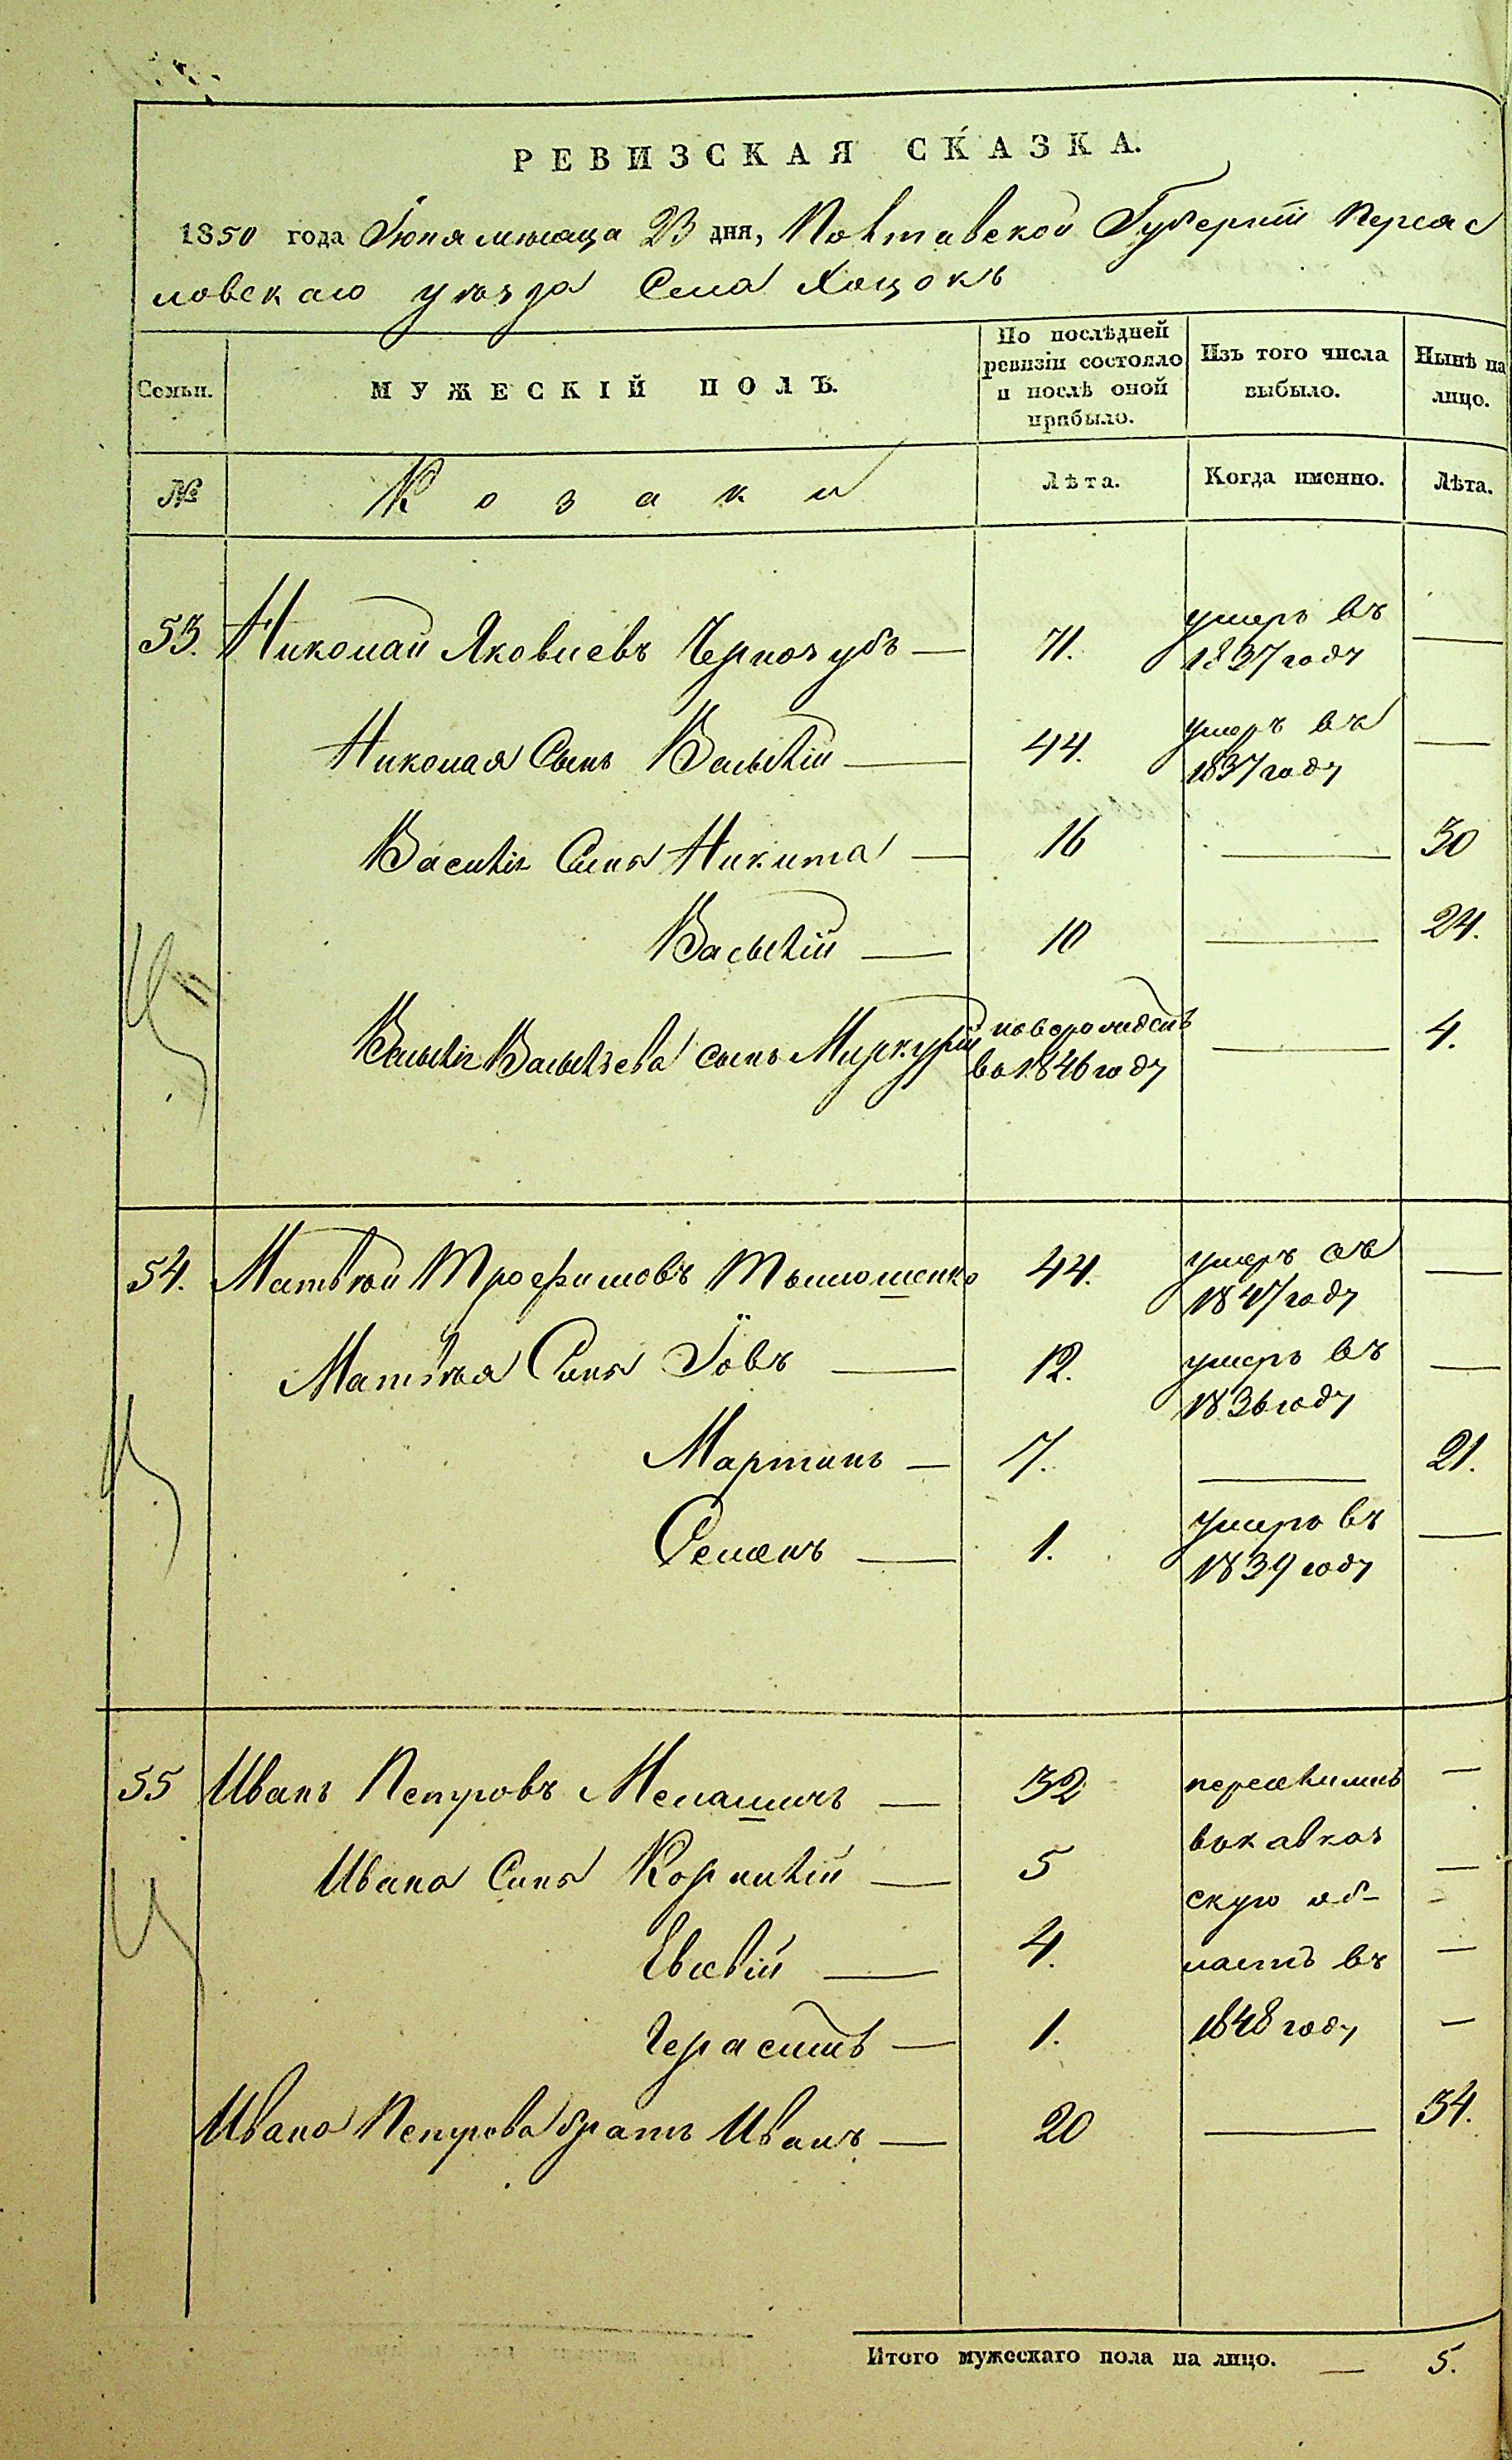 РЕВИЗСКАЯ СКАЗКА.
1850 года Іюня мѣсяца 23 дня, Полтавской Губерніи Переяс
ловскаго уѣзда Села Хоцокъ
Семьи. МУЖЕСКІЙ ПОЛЪ. По послѣдней ревизіи состояло и послѣ оной прибыло. Изъ того числа выбыло. Нынѣ на лицо.
№ Козаки Лѣта. Когда именно. Лѣта.
53. Николай Яковлевъ Чернозубъ — 71. умеръ въ 1837 году —
Николая Сынъ Василій — 44. умеръ въ 1837 году —
Василія Сынъ Никита — 16 — 30
Василій — 10 — 24.
Василія Васильева сынъ Меркурій новорожденъ въ 1846 году — 4.
54. Матвѣй Трофимовъ Тымошенко 44. умеръ въ 1847 году —
Матвѣя Сынъ Іовъ — 12. умеръ въ 1836 году —
Мартинъ — 7. — 21.
Семенъ — 1. умеръ въ 1839 году —
55 Иванъ Петровъ — 32 —
Ивана Сынъ Корнилій — 5 —
Евсевій — 4. —
Герасимъ — 1. —
въ Кавказ
скую об-
ласть въ
1848 году
Ивана Петрова братъ Иванъ — 20 — 34.
Итого мужескаго пола на лицо. — 5.